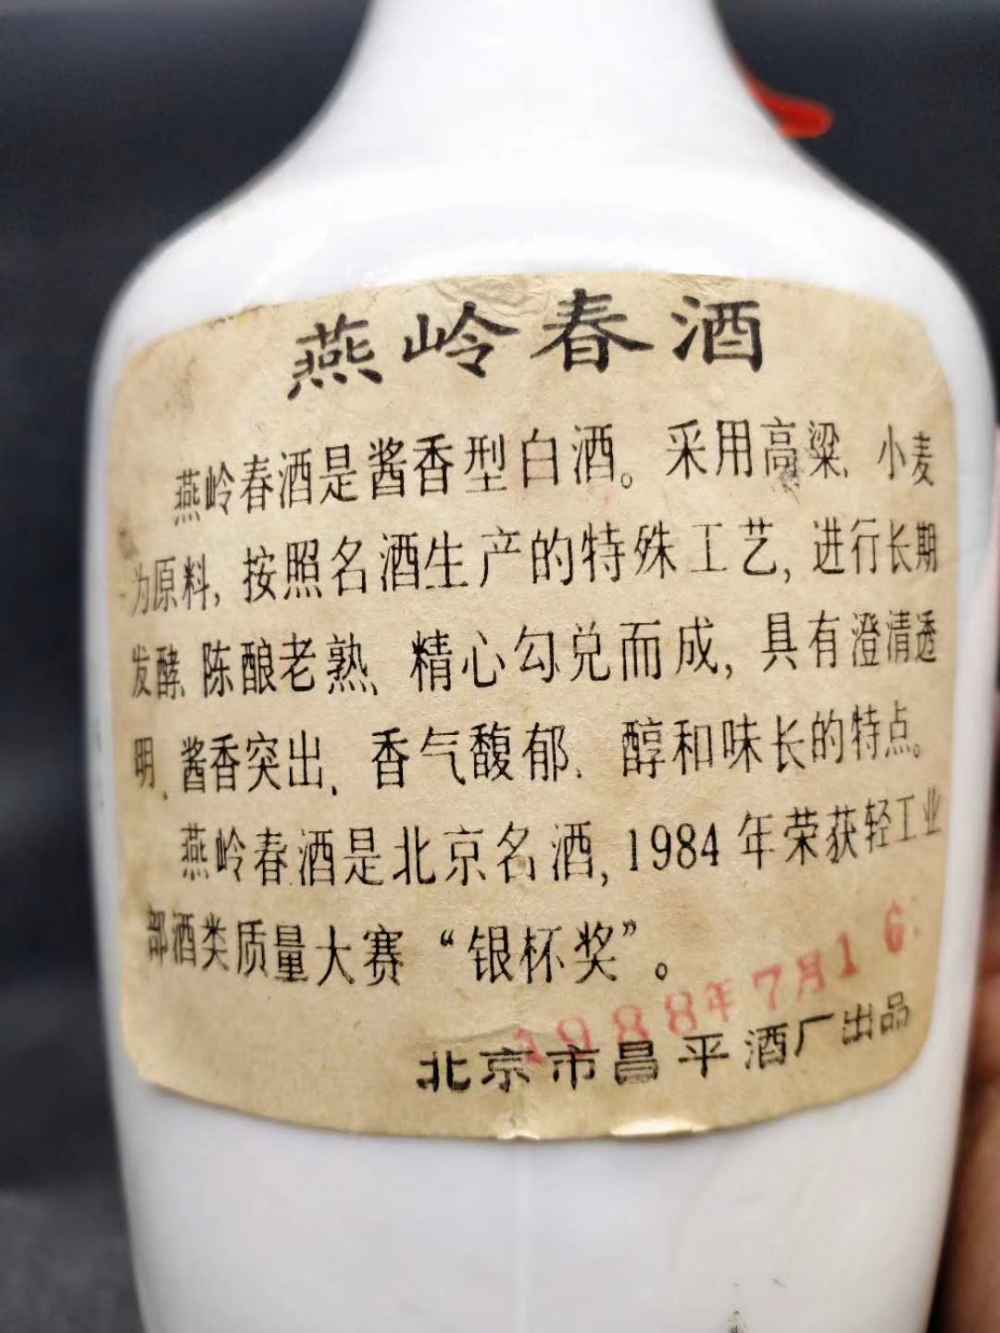 燕岭春酒
燕岭春酒是酱香型白酒。采用高粱、小麦
为原料,按照名酒生产的特殊工艺,进行长期
发酵、陈酿老熟、精心勾兑而成,具有澄清透
明、酱香突出、香气馥郁、醇和味长的特点。
燕岭春酒是北京名酒,1984年荣获轻工业
部酒类质量大赛“银杯奖”。
1988年7月16
北京市昌平酒厂出品